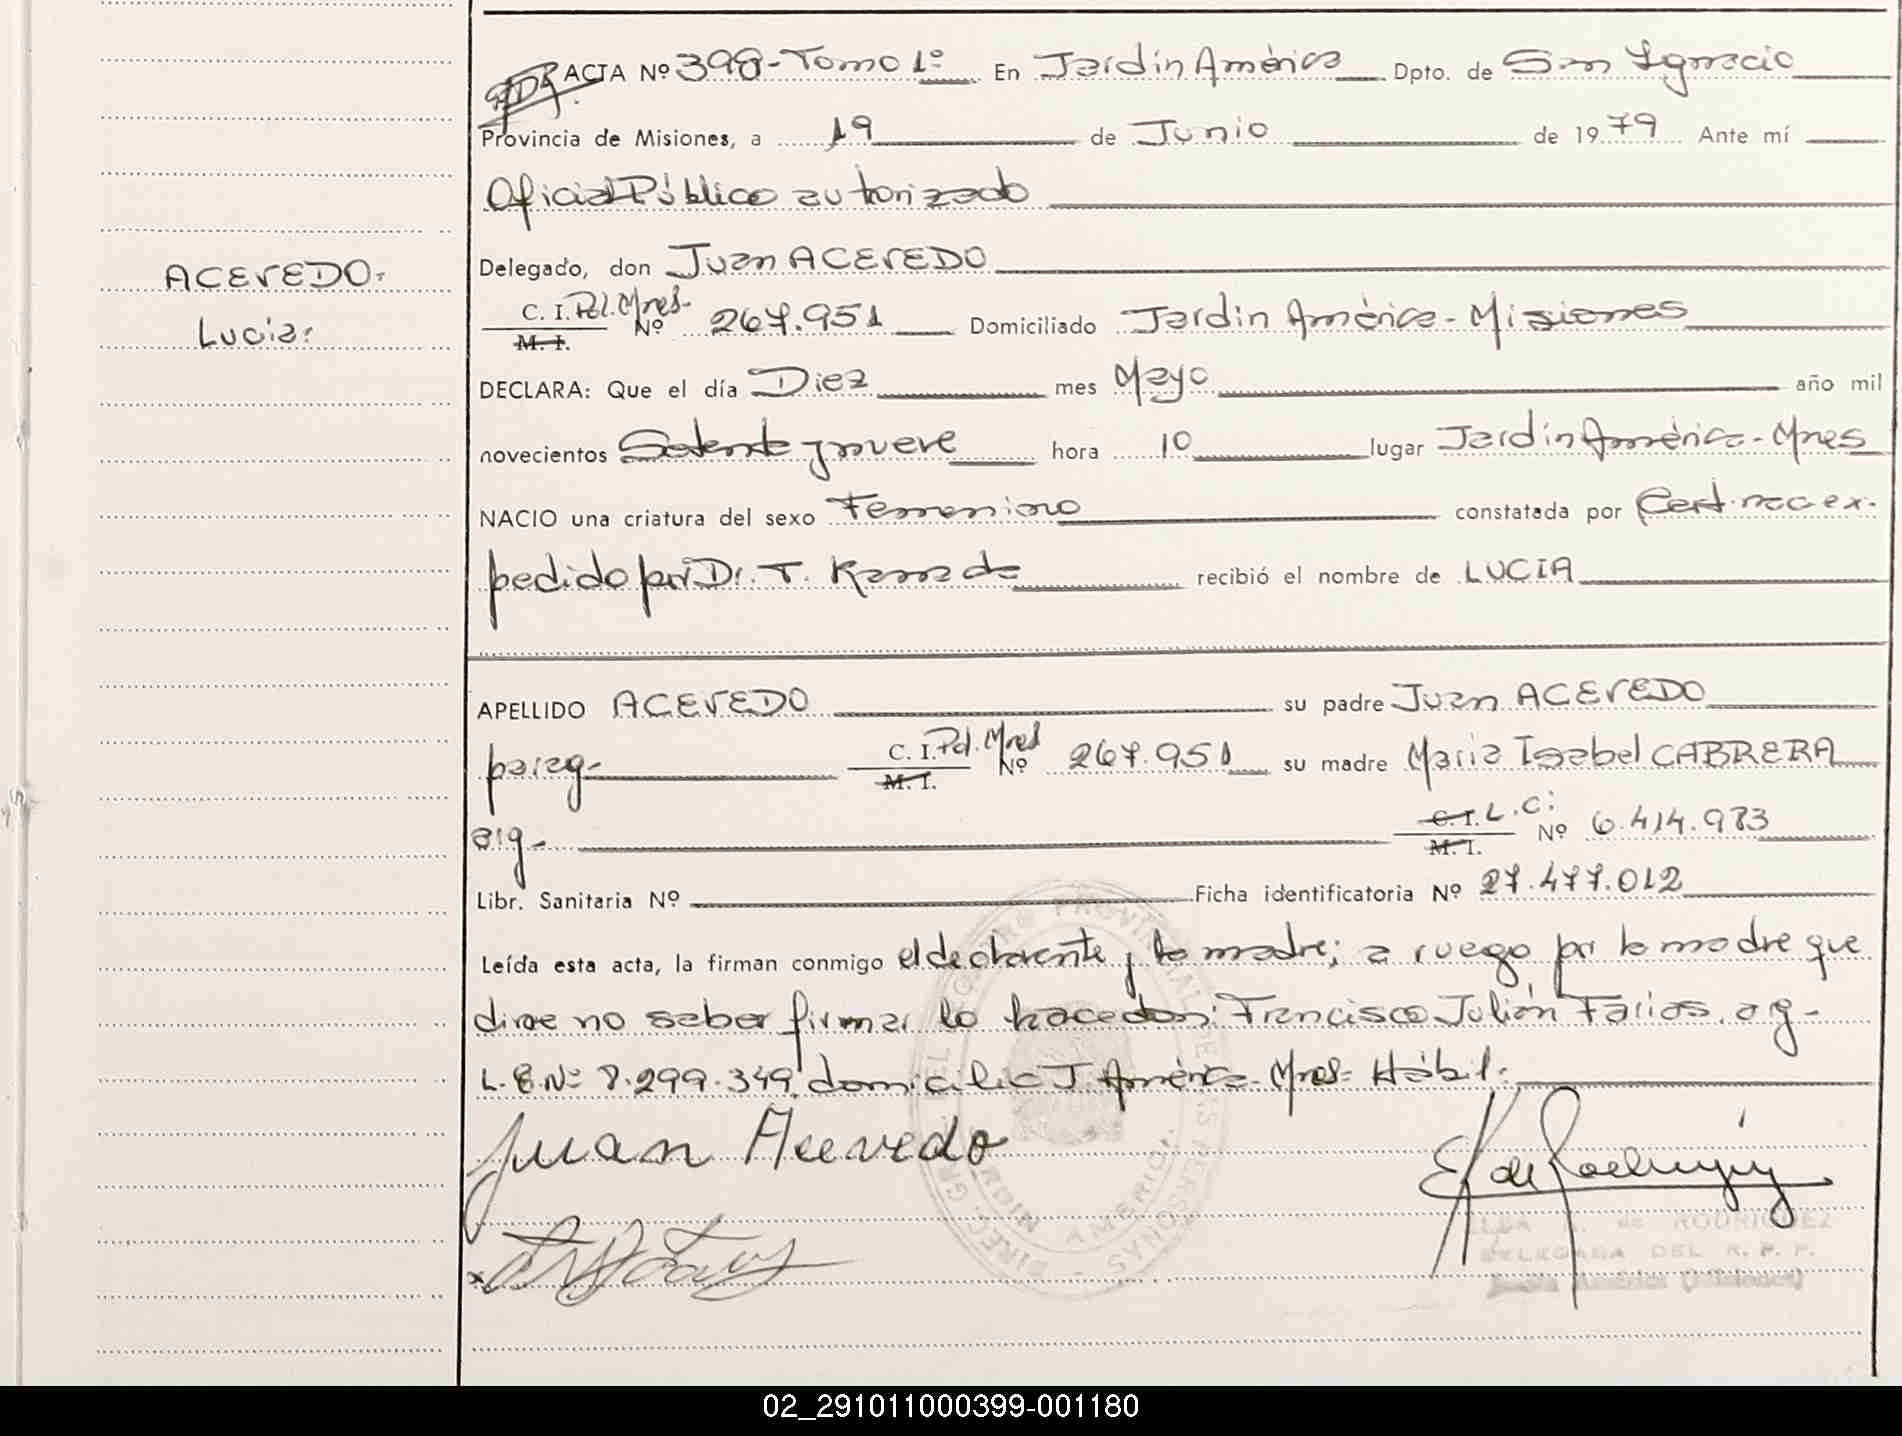 ACTA Nº 398-Tomo 1º En Jardín América Dpto. de San Ignacio
Provincia de Misiones, a 19 de Junio de 1979 Ante mí
Oficial Público autorizado
Delegado, don Juan ACEVEDO
ACEVEDO.
Lucía.
C. I. Pol. Mnes-
M. I.
Nº 267.951 Domiciliado Jardín América - Misiones
DECLARA: Que el día Diez mes Mayo año mil
novecientos Setenta y nueve hora 10 lugar Jardín América - Mnes
NACIO una criatura del sexo Femenino constatada por Cert. nac ex-
pedido por Dr. T. recibió el nombre de LUCIA
APELLIDO ACEVEDO su padre Juan ACEVEDO
parag- C. I. Pol. Mnes
M. I.
Nº 267.951 su madre María Isabel CABRERA
arg- C. I. L.C.
M. I.
Nº 6.414.983
Libr. Sanitaria Nº Ficha identificatoria Nº 27.477.012
Leída esta acta, la firman conmigo el declarante y la madre; a ruego por la madre que
dice no saber firmar lo hace don: Francisco Julián Farias, arg-
L.E.Nº 8.299.349, domicilio J. América - Mnes - Hábil.
Juan Acevedo
ELBA K. de RODRIGUEZ
DELEGADA DEL R. P. P.
Jardín América (Misiones)
DIREC. GRAL. DEL REGISTRO PROVINCIAL DE LAS PERSONAS
JARDIN AMERICA
02_291011000399-001180